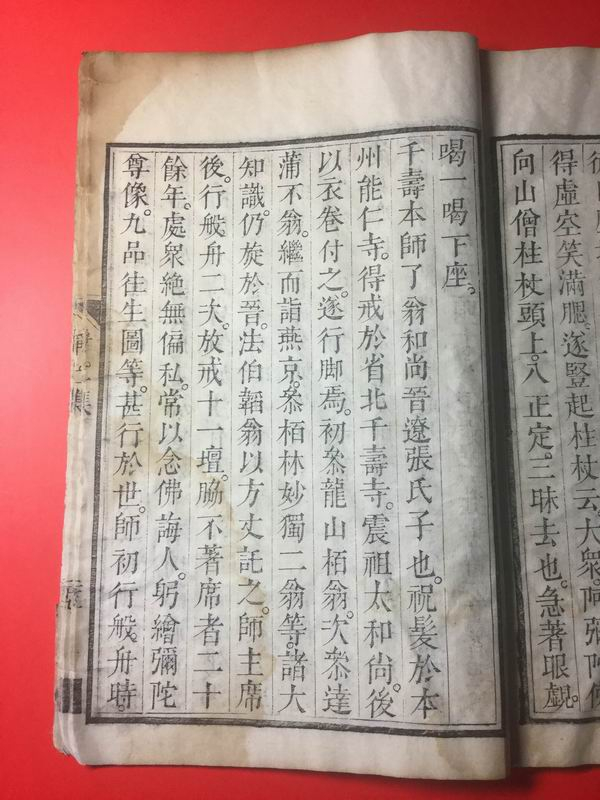 得虛空笑滿腮。遂豎起拄杖云。大衆。阿彌陀佛
向山僧拄杖頭上。入正定。三昧去也。急著眼覷。
喝一喝下座。
千壽本師了翁和尚晉遼張氏子也。祝髮於本
州能仁寺。得戒於省北千壽寺。震祖太和尚。後
以衣卷付之。遂行脚焉。初叅龍山栢翁。次叅達
蒲不翁。繼而詣燕京。叅栢林妙獨二翁等。諸大
知識。仍旋於晉。法伯韜翁以方丈託之。師主席
後。行般舟二次。放戒十一壇。脇不著席者二十
餘年。處衆絶無偏私。常以念佛誨人。躬繪彌陀
尊像。九品往生圖等。甚行於世。師初行般。舟時。
集